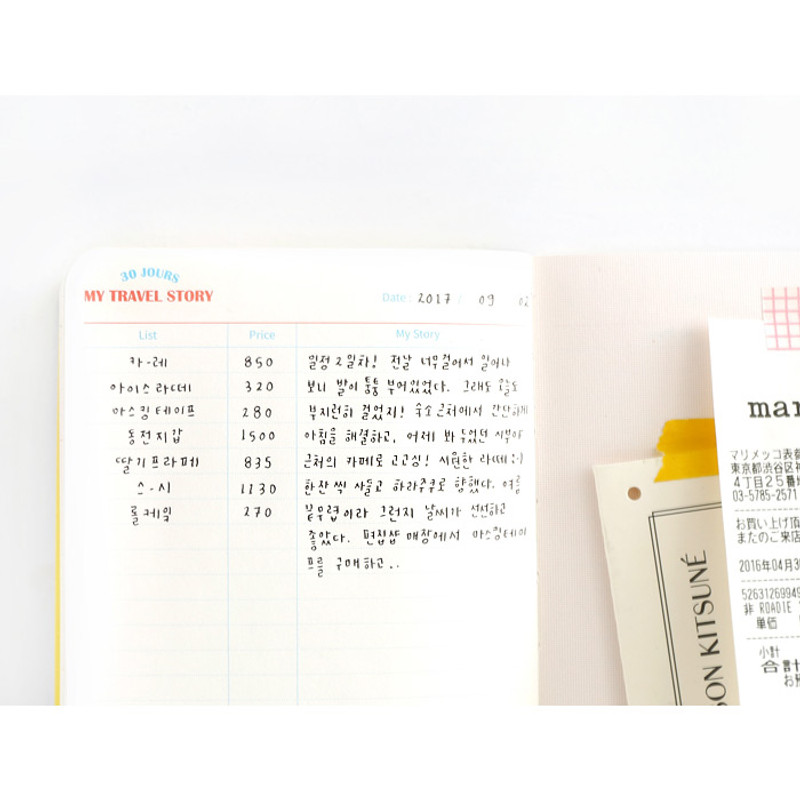 30 JOURS
MY TRAVEL STORY
Date : 2017 / 09 02
List Price My Story
카-레 850 일정 2일차! 전날 너무걸어서 일어나
아이스라떼 320 보니 발이 퉁퉁 부어있었다. 그래도 오늘도
마스킹테이프 280 부지런히 걸었지! 숙소근처에서 간단하게
동전지갑 1500 아침을 해결하고, 어제 봐두었던 시부야
딸기프라페 835 근처의 카페로 고고싱! 시원한 라떼
스-시 1130 한잔씩 사들고 하라주쿠로 향했다. 여름
롤케잌 270 늦무렵이라 그런지 날씨가 선선하고
좋았다. 편집샵 매장에서 마스킹테이
프를 구매하고..
mar
マリメッコ表参
東京都渋谷区神
4丁目25番地
03-5785-2571
お買い上げ頂
またのご来店
2016年04月3
5263126994
非 ROADIE
単価
小計
合計
お預
SON KITSUNÉ